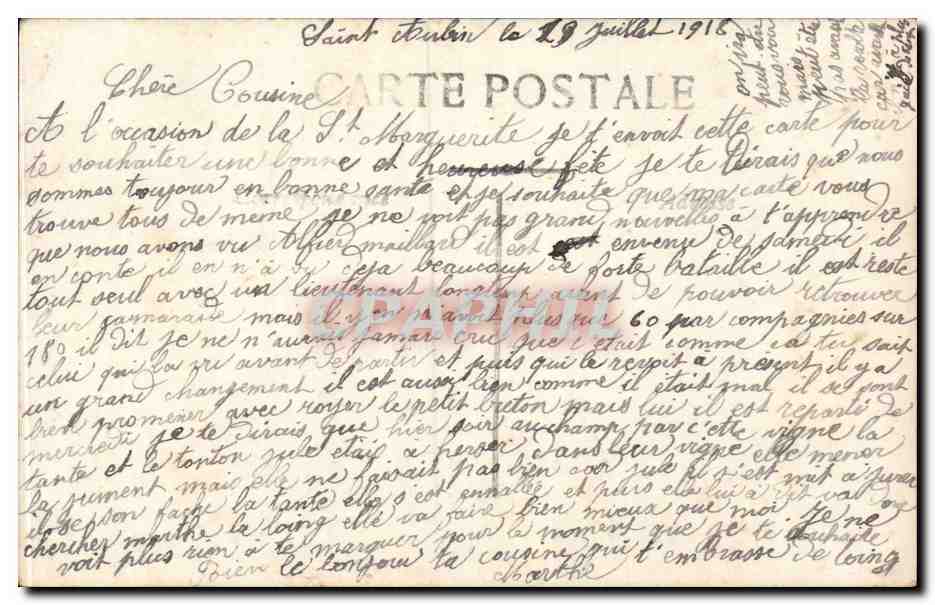 Saint Aubin le 19 Juillet 1918
Chère Cousine
CARTE POSTALE
A l'occasion de la St Marguerite je t'envoit cette carte pour
te souhaiter une bonne et heureuse fête je te dirais que nous
sommes toujour en bonne santé et je souhaite que ma carte vous
trouve tous de meme je ne voit pas grand nouvelles à t'apprendre
que nous avons vu Alfred maillard il est en venu de samedi il
en conte il en n'à vu deja beaucoup de forte bataille il est resté
tout seul avec un lieutenant longtemp avant de pouvoir retrouver
leur camarade mais il y en n'avait plus sur 60 par compagnies sur
180 il dit je ne n'aurai jamais cru que c'était comme ca tu sait
celui qui la vu avant de partir et puis qui le revoit à present il y a
un grand changement il est aussi bien comme il était mal il se sont
bien promener avec royer le petit breton mais lui il est reparti de
mercredi je te dirais que hier soir au champ par cette vigne la
tante et le tonton jule était à perser dans leur vigne elle mener
la jument mais elle ne faisait pas bien car jule il s'est mit à jurer
son faché la tante elle s'est ennallée et puis elle lui à dit va donc
chercher marthe la loing elle va faire bien mieux que moi je ne
voit plus rien à te marquer pour le moment que je te souhaite
bien le bonjour ta cousine qui t'embrasse de loing
Marthe
peut etre
vous voir
mais
peut etre
pas avant
CPAPHIL